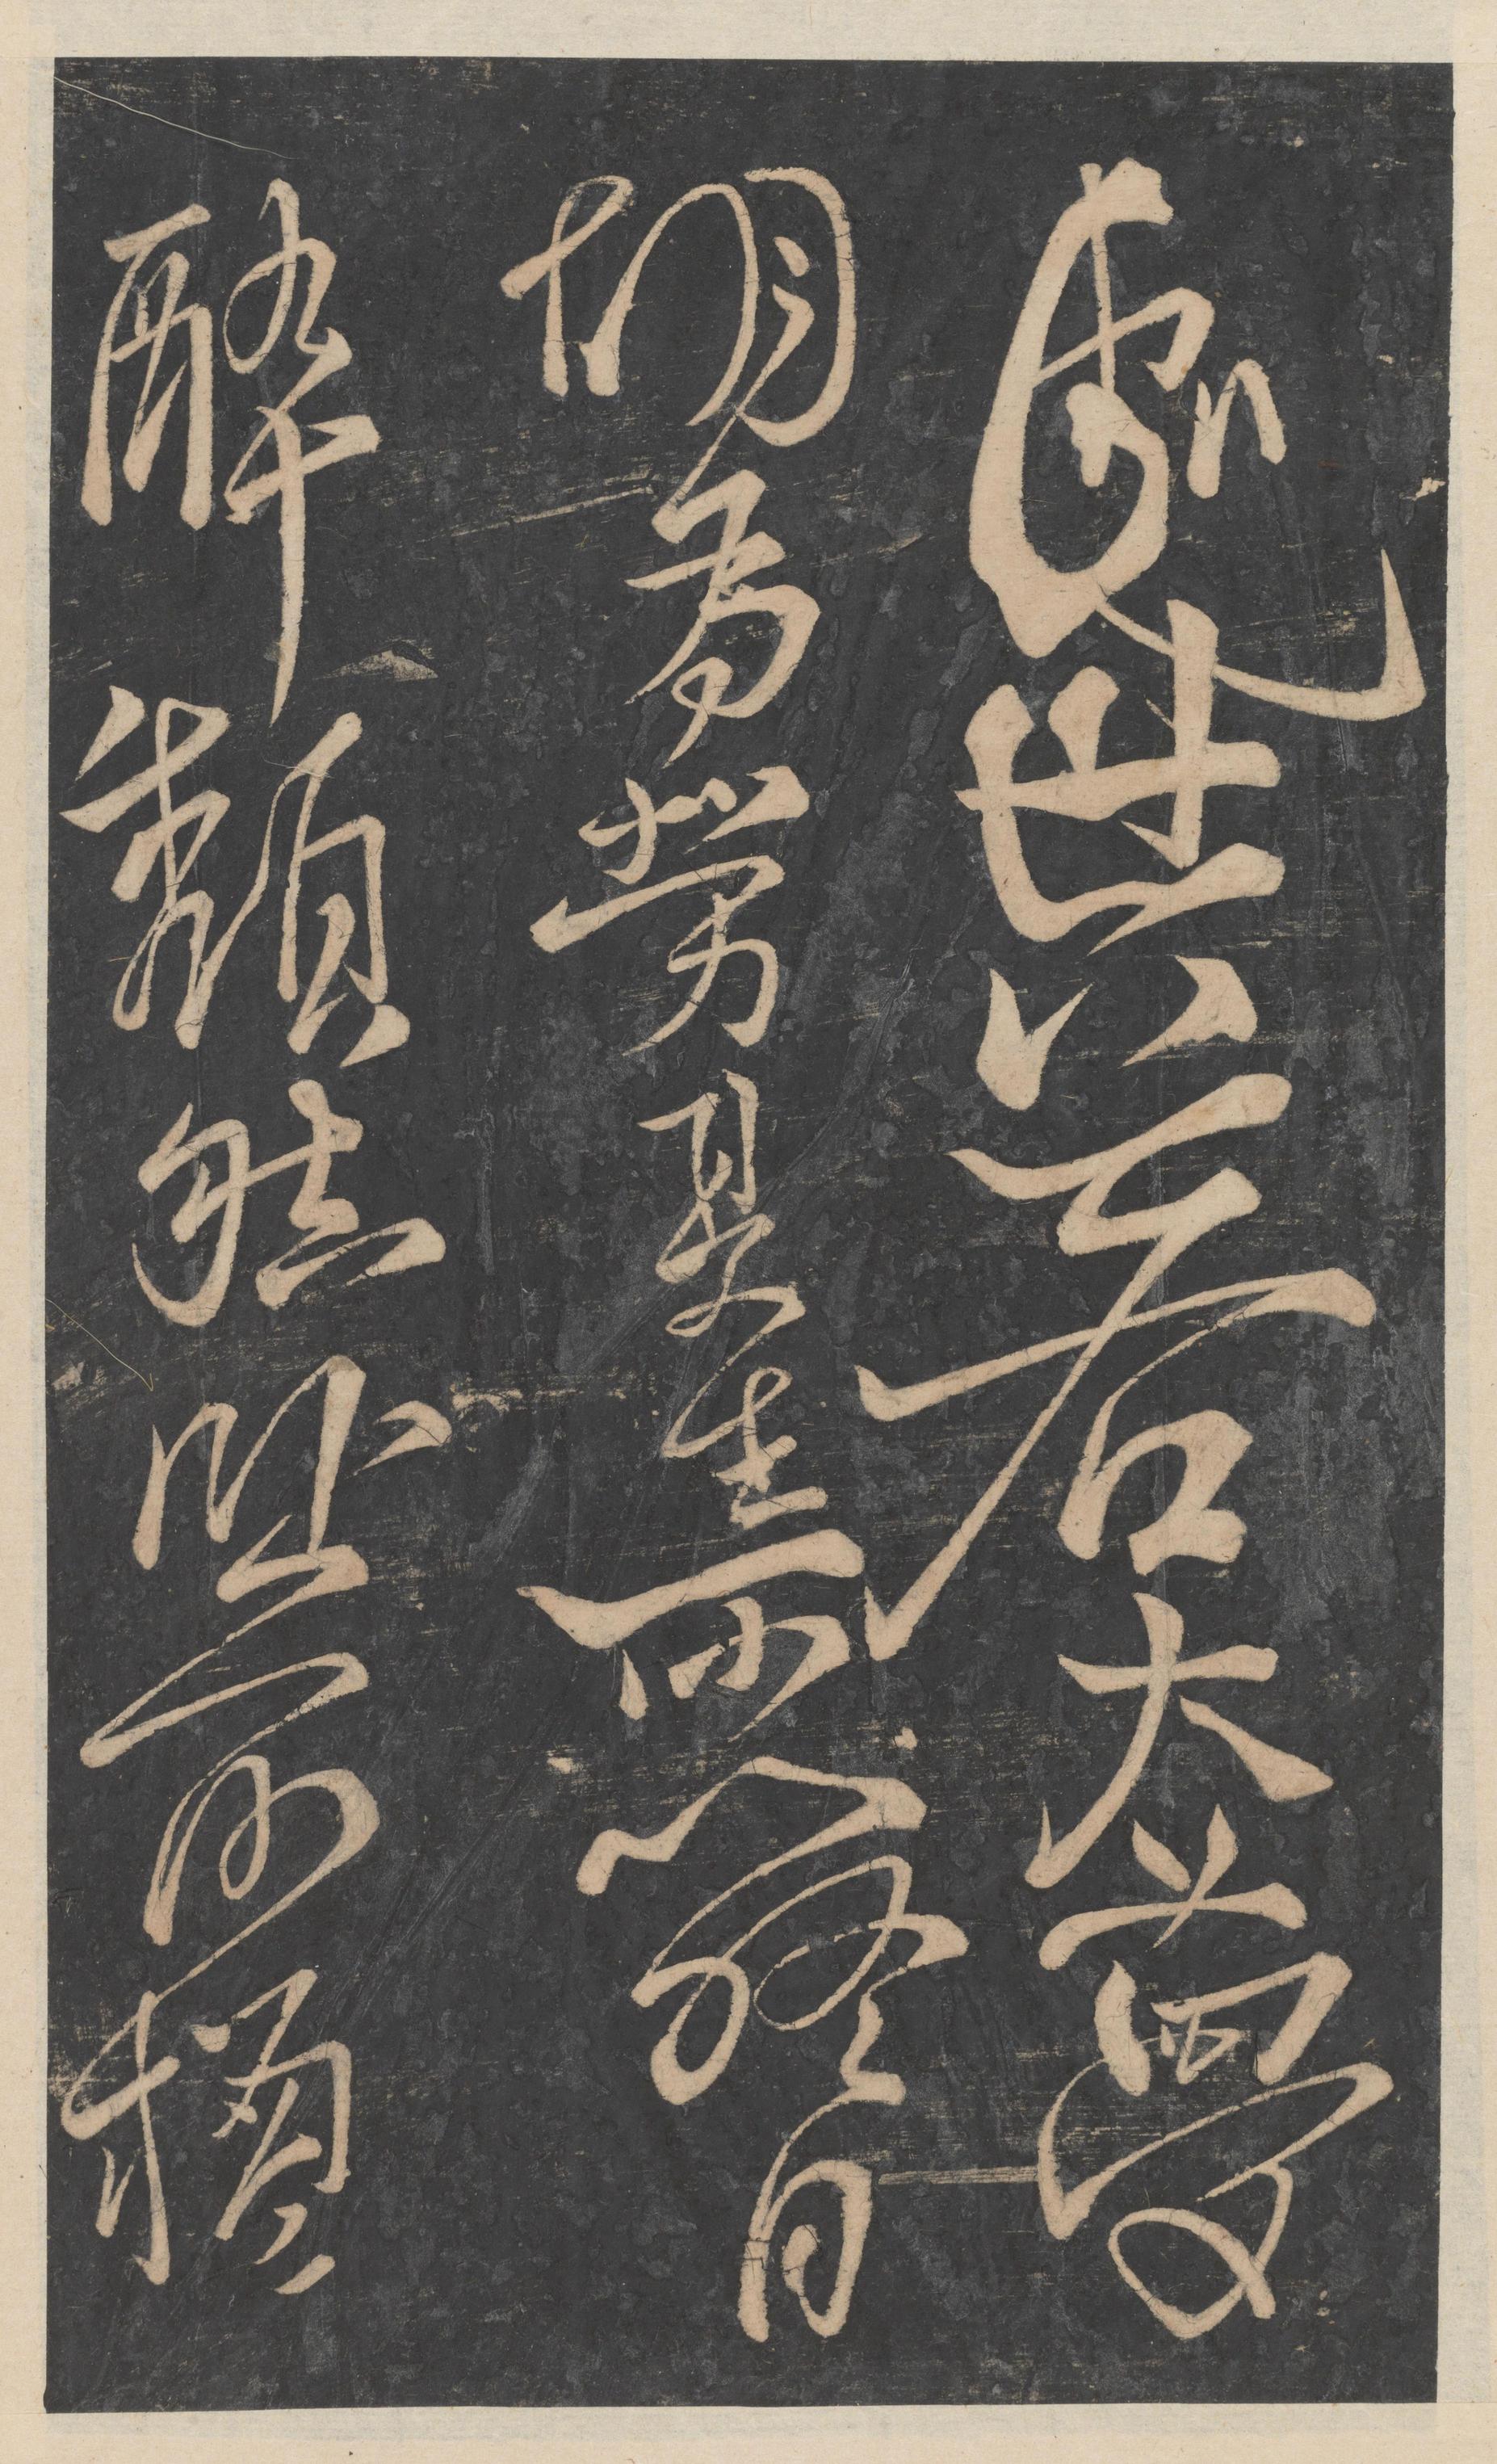 處世若大夢
胡為勞其生所以終日
醉頽然臥前楹